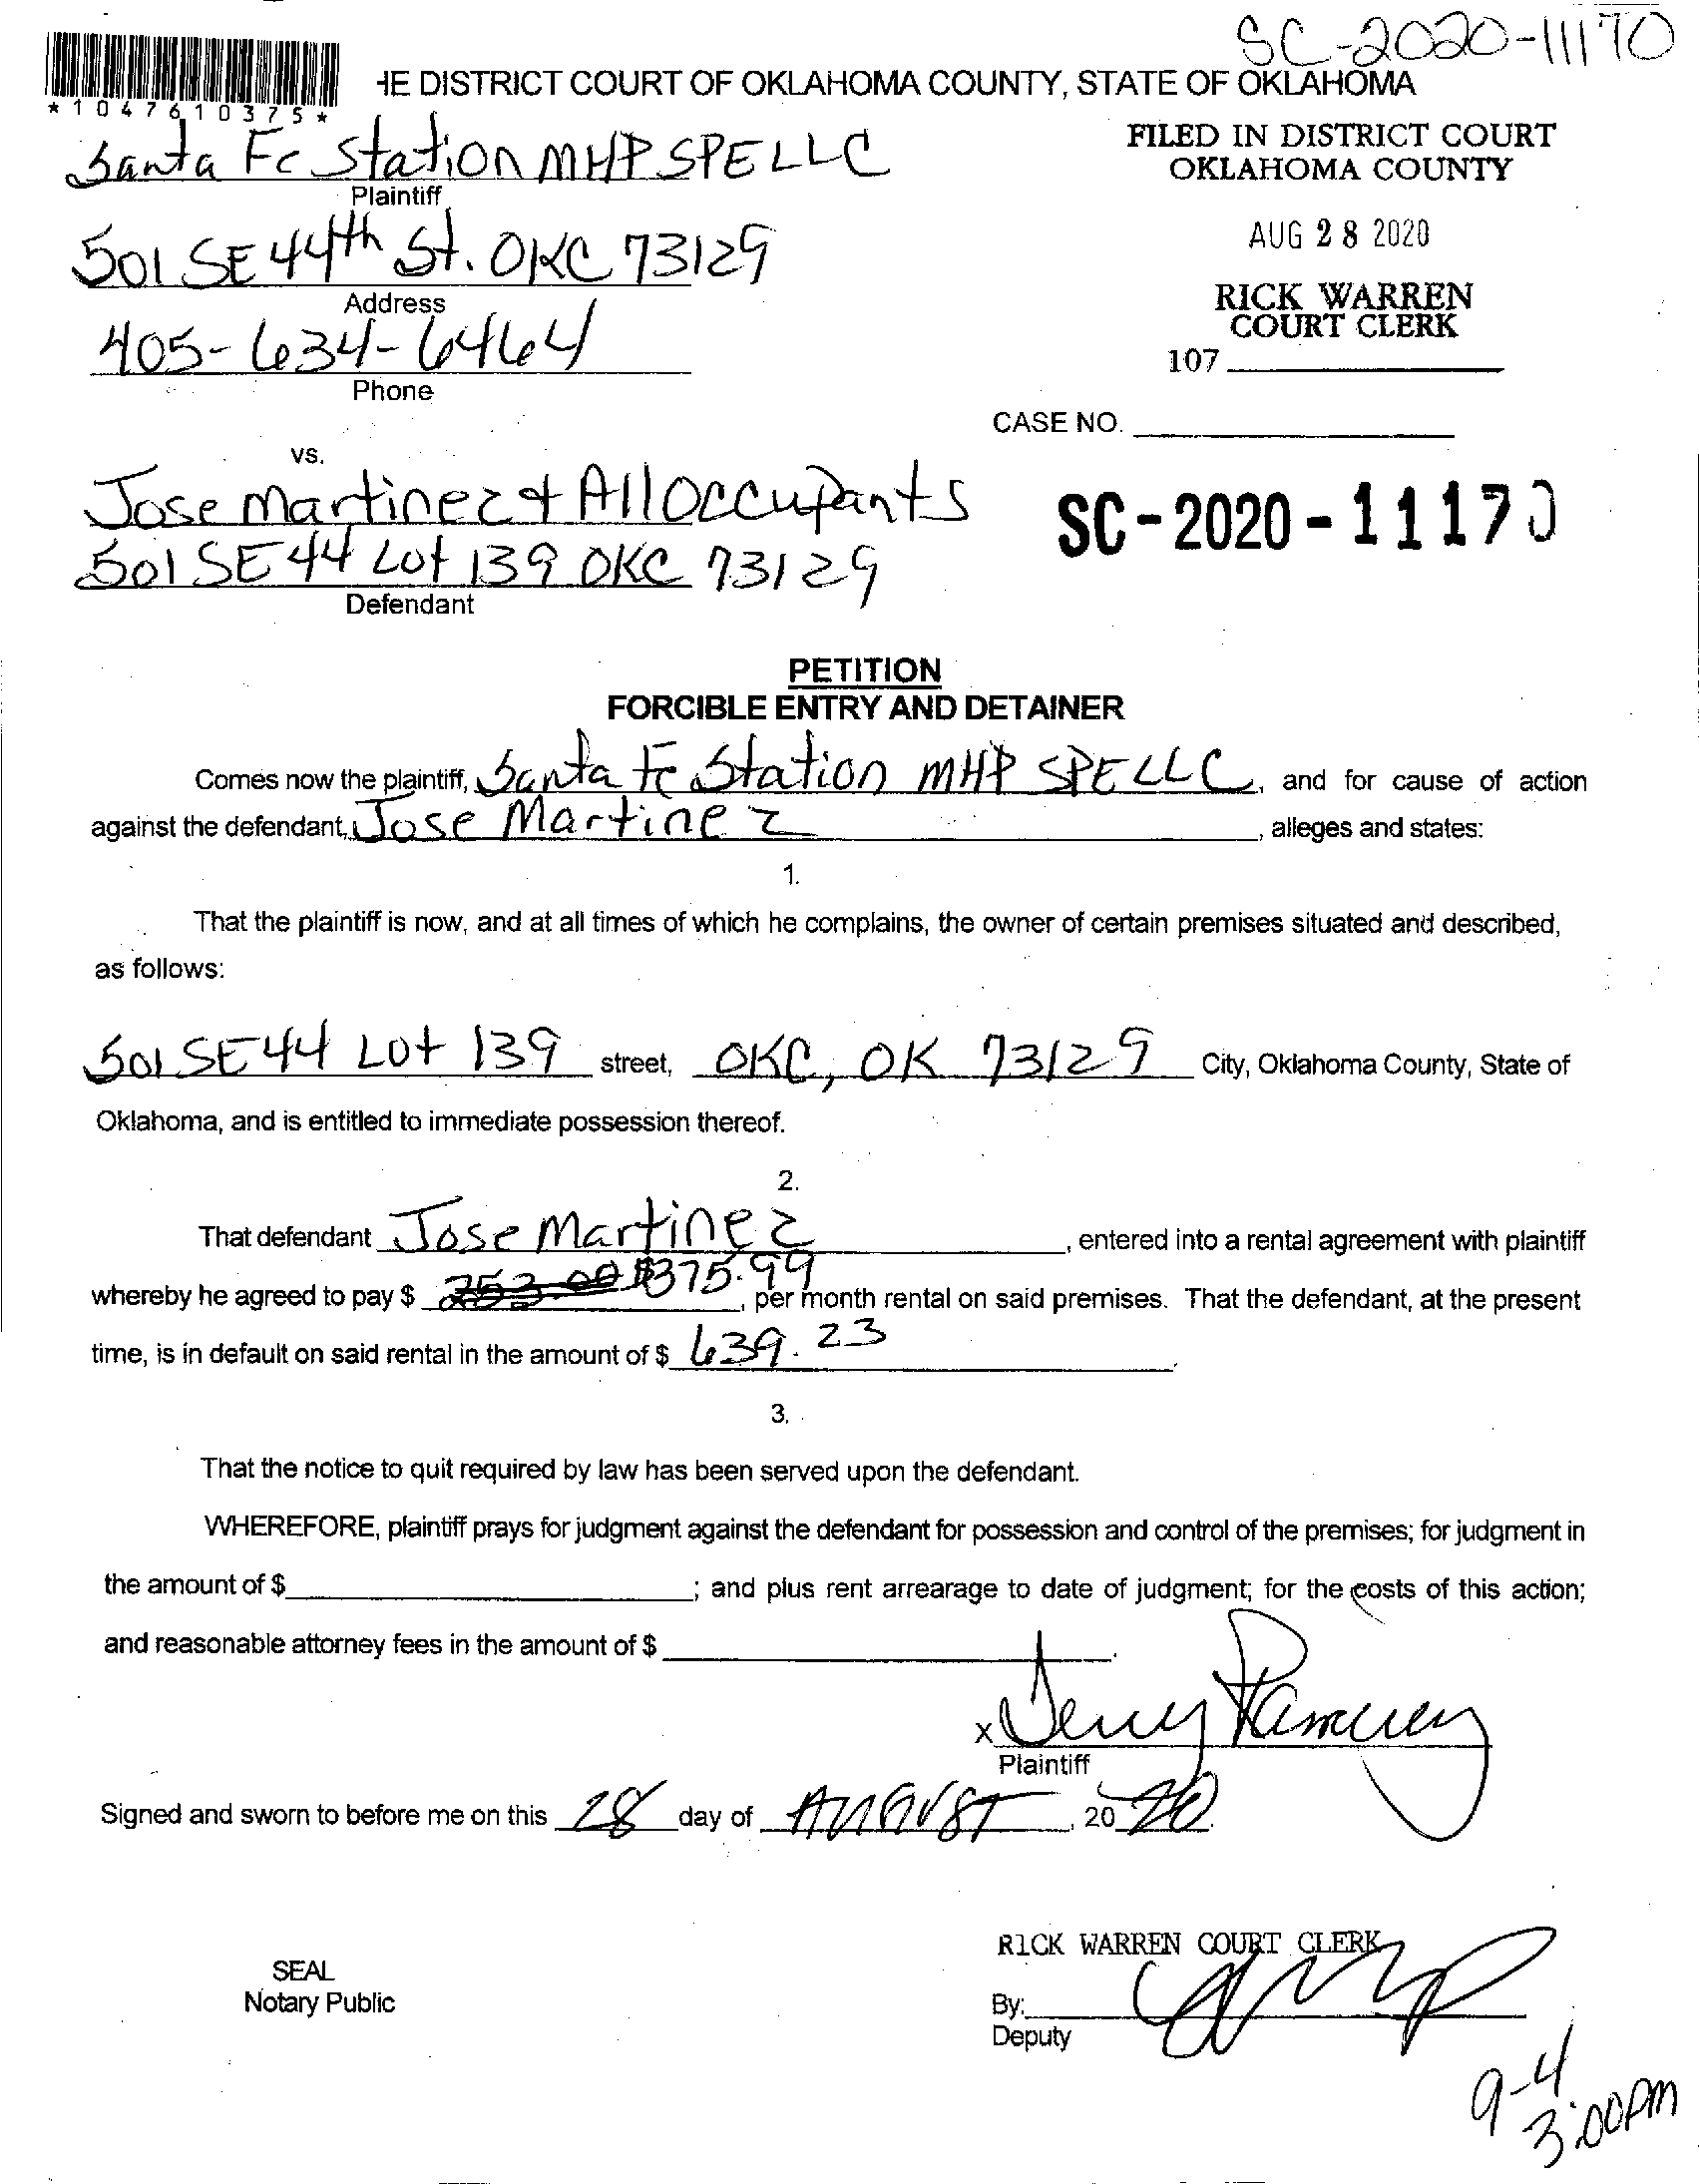 SC-2020-11170
HE DISTRICT COURT OF OKLAHOMA COUNTY, STATE OF OKLAHOMA
*1047610375*
Santa Fe Station MHP SPE LLC
Plaintiff
FILED IN DISTRICT COURT
OKLAHOMA COUNTY
501 SE 44th St. OKC 73129
Address
AUG 28 2020
405-634-6464
Phone
RICK WARREN
COURT CLERK
107
CASE NO.
vs.
Jose Martinez & All Occupants
501 SE 44 Lot 139 OKC 73129
Defendant
SC-2020-11170
PETITION
FORCIBLE ENTRY AND DETAINER
Comes now the plaintiff, Santa Fe Station MHP SPE LLC, and for cause of action
against the defendant, Jose Martinez, alleges and states:
1.
That the plaintiff is now, and at all times of which he complains, the owner of certain premises situated and described,
as follows:
501 SE 44 Lot 139 street, OKC, OK 73129 City, Oklahoma County, State of
Oklahoma, and is entitled to immediate possession thereof.
2.
That defendant Jose Martinez, entered into a rental agreement with plaintiff
whereby he agreed to pay $ 253.00 $375.99, per month rental on said premises. That the defendant, at the present
time, is in default on said rental in the amount of $ 639.23.
3.
That the notice to quit required by law has been served upon the defendant.
WHEREFORE, plaintiff prays for judgment against the defendant for possession and control of the premises; for judgment in
the amount of $ ; and plus rent arrearage to date of judgment; for the costs of this action;
and reasonable attorney fees in the amount of $ .
X
Plaintiff
Signed and sworn to before me on this 28 day of AUGUST, 2020.
RICK WARREN COURT CLERK
SEAL
Notary Public
By:
Deputy
9-4
3:00PM